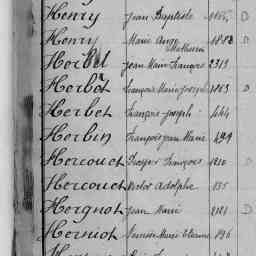 Henry Jean Baptiste D
Henry Marie Ange Mathurin 1888 D
Herbel Jean Marie François 2319
Herbot François Marie Joseph 1863 D
Herbet François Joseph 444
Herbin François Jean Marie 494
Hercouet Prosper François 1210
Hercouet Victor Adolphe 135
Hergnot Jean Marie 2121 D
Herniot Marie Etienne 896